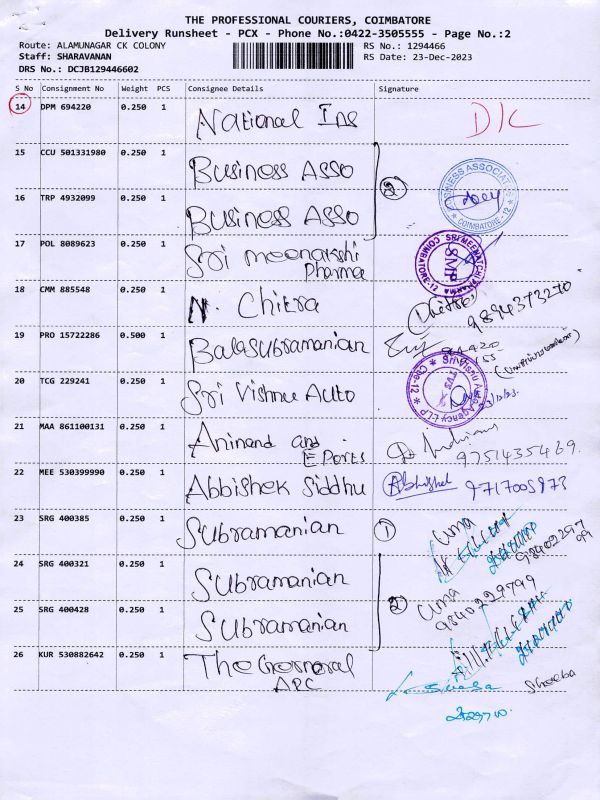 THE PROFESSIONAL COURIERS, COIMBATORE
Delivery Runsheet - PCX - Phone No.:0422-3505555 - Page No.:2
Route: ALAMUNAGAR CK COLONY
RS No.: 1294466
Staff: SHARAVANAN
RS Date: 23-Dec-2023
DRS No.: DCJB129446602
S No Consignment No Weight PCS Consignee Details Signature
14 DPM 694220 0.250 1 National Ins D/C
15 CCU 501331980 0.250 1 Business Asso
16 TRP 4932099 0.250 1 Business Asso
2
BUSINESS ASSOCIATES
* COIMBATORE - 12 *
17 POL 8089623 0.250 1 Sri meenakshi
Pharma
SMP
COIMBATORE-12
18 CMM 885548 0.250 1 N. Chitra
9894373270
19 PRO 15722286 0.500 1 Balasubramanian
20 TCG 229241 0.250 1 Sri Vishnu Auto
Cbe-12
21 MAA 861100131 0.250 1 Aninand and
EPorts
9751435469.
22 MEE 530399990 0.250 1 Abbishek Siddhu Abhishek 9717005973
23 SRG 400385 0.250 1 Subramanian 1 Uma
9840229799
24 SRG 400321 0.250 1 Subramanian
25 SRG 400428 0.250 1 Subramanian
2 Uma
9840229799
26 KUR 530882642 0.250 1 The General
APC
Sheeba